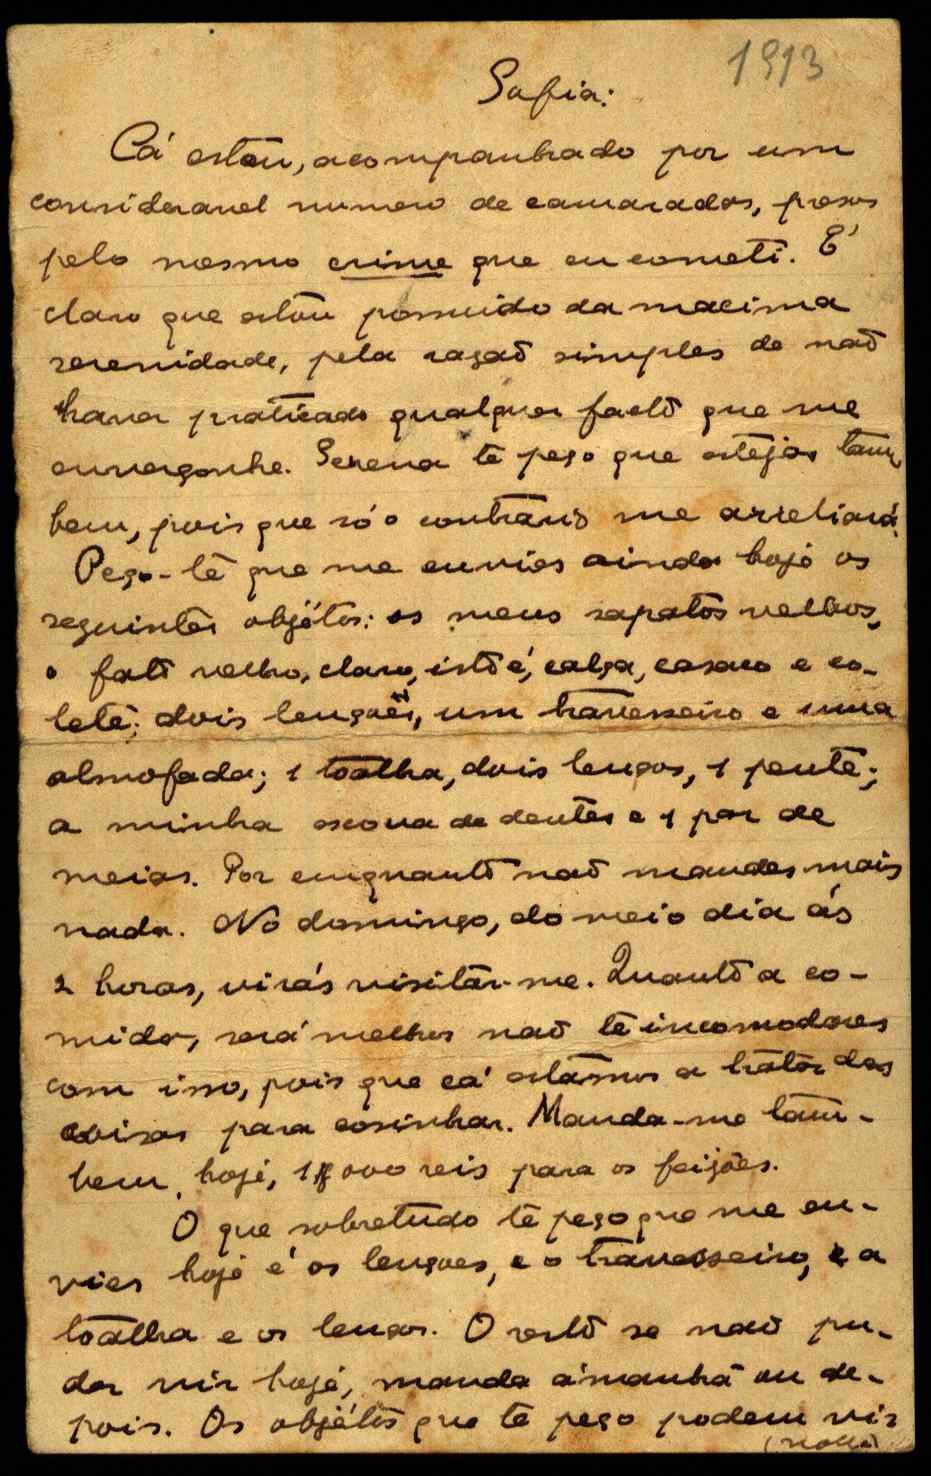 1913
Sofia:
Cá estou, acompanhado por um
consideravel numero de camaradas, presos
pelo mesmo crime que eu cometi. É
claro que estou possuido da maxima
serenidade, pela razaõ simples de naõ
haver praticado qualquer facto que me
envergonhe. Serena te peço que estejas tam
bem, pois que só o contrario me arreliará.
Peço-te que me envies ainda hoje os
seguintes objétos: os meus sapatos velhos,
o fato velho, claro, isto é, calça, casaco e co-
lete; dois lençoes, um travesseiro e uma
almofada; 1 toalha, dois lenços, 1 pente;
a minha escova de dentes e 1 par de
meias. Por emquanto naõ mandes mais
nada. No domingo, do meio dia ás
2 horas, virás visitar-me. Quanto a co-
mida, será melhor naõ te incomodares
com isso, pois que cá estamos a tratar das
coisas para cosinhar. Manda-me tam-
bem, hoje, 1$000 reis para os feijões.
O que sobretudo te peço que me en-
vies hoje é os lençoes, e o travesseiro, e a
toalha e os lenços. O resto se naõ pu-
der vir hoje, manda ámanhã ou de-
pois. Os objétos que te peço podem vir
(volta)